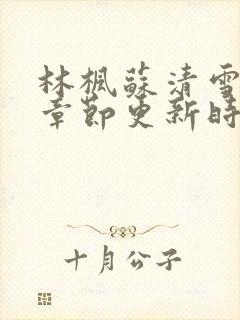 林楓蘇清雪
章節更新時
十月公子